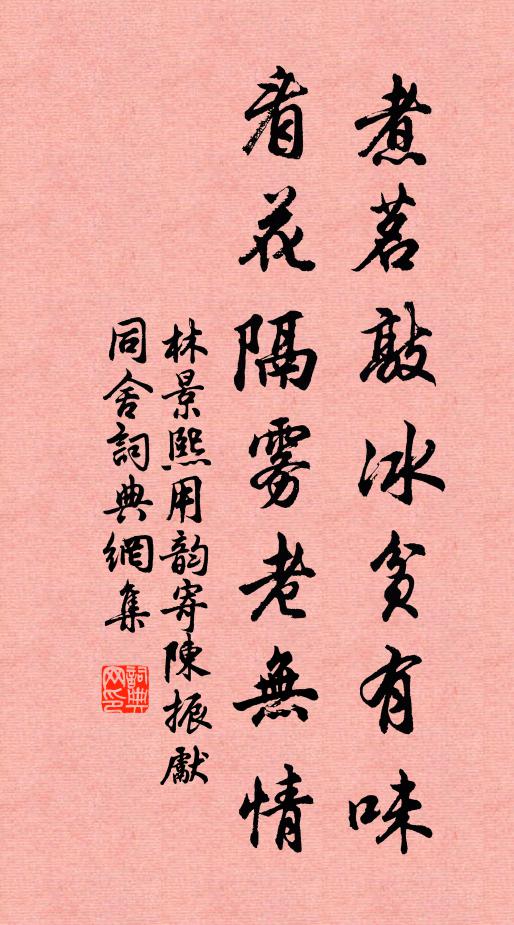 煮茗敲冰贫有味
看花隔雾老無情
林景熙用韵寄陳振獻
同舍詞典網集
詞典网印